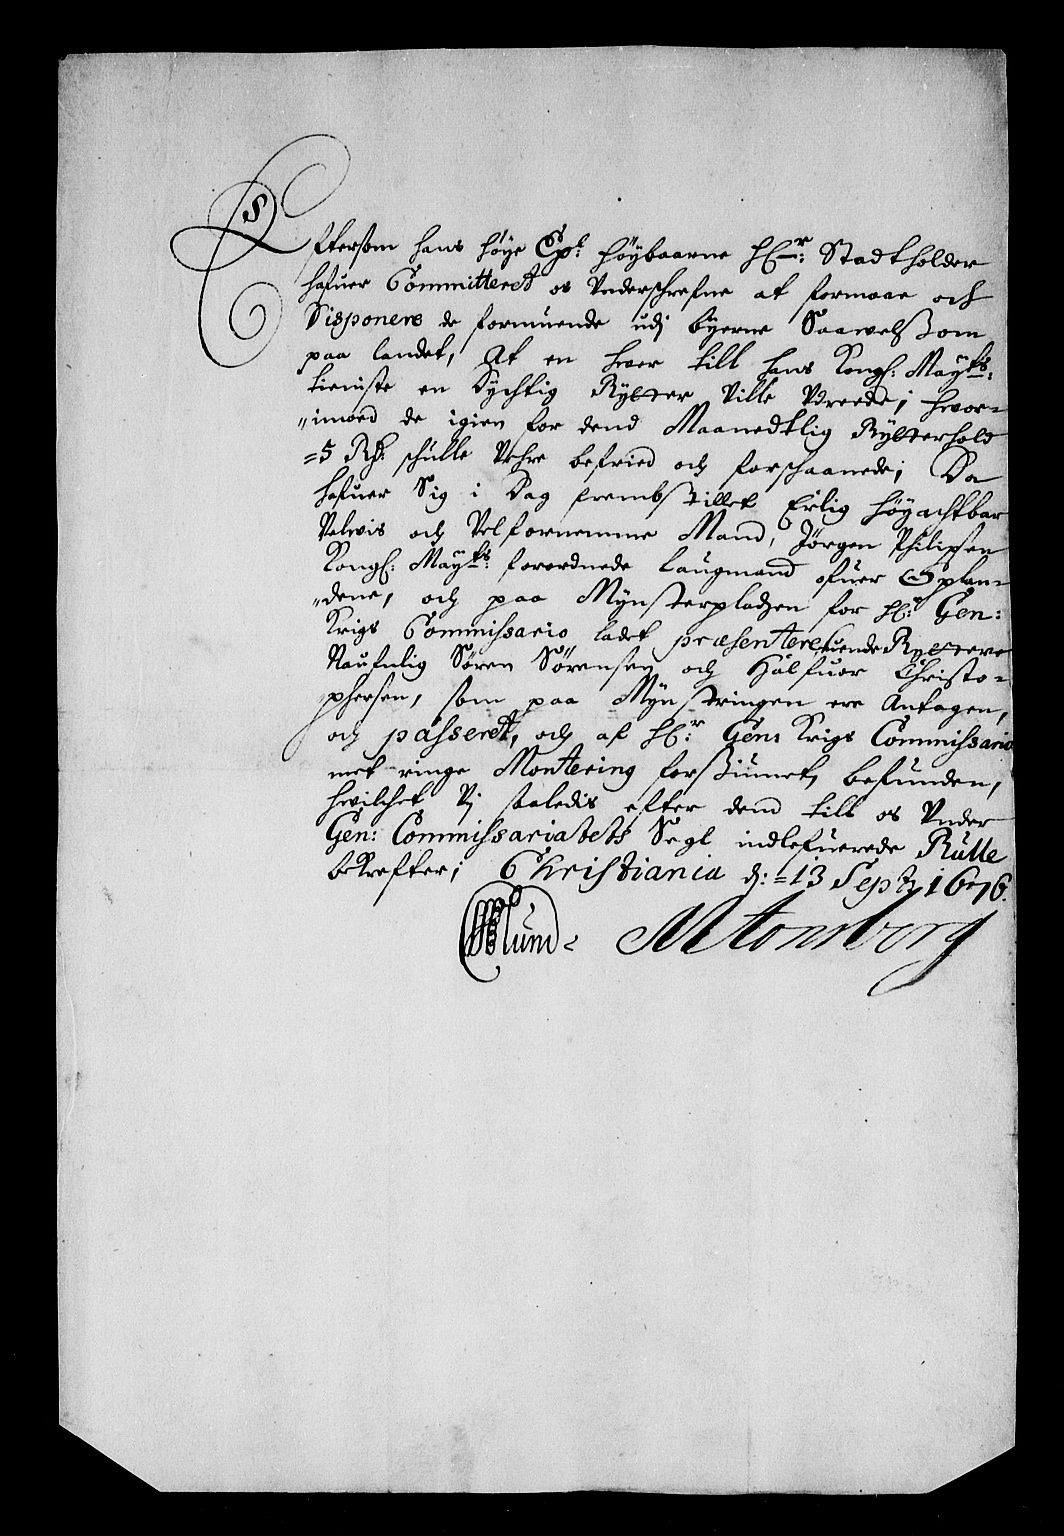 Eftersom hans høye Exc: høybaarne H:r Stadtholder
hafuer Committeret os Underschrefne at formaae och
Disponere de formuende udj byerne Saawelsom
paa landet, At en hver till hans Kongl: May:ts
tieniste en dychtig Rytter Ville Udreede; hwor-
imoed de igien for dend Maanedtlig Rytterhold
5 Rd: schulle Vehre befried och forschaanede; Da
hafuer Sig i Dag frembstillet Erlig høyachtbar
Velwis och Velfornemme Mand, Jørgen Philipsen
Kongl: May:ts forordnede Laugmand ofuer Oplan-
dene, och paa Mynsterpladzen for H:r Gen:
Krigs Commissario ladet præsentere tuende Ryttere
Naufnlig Søren Sørensen och Halfuor Christo-
phersen, som paa Mynstringen ere Antagen,
och passeret, och af H:r Gen: Krigs Commissario
met ringe Montering forsiunet befunden,
hwilchet Vj saaledis efter dend till os Under
Gen: Commissariatets Segl indlefuerede Rulle
bekrefter; Christiania d: 13 Sept: 1676.
Lund MTonsberg